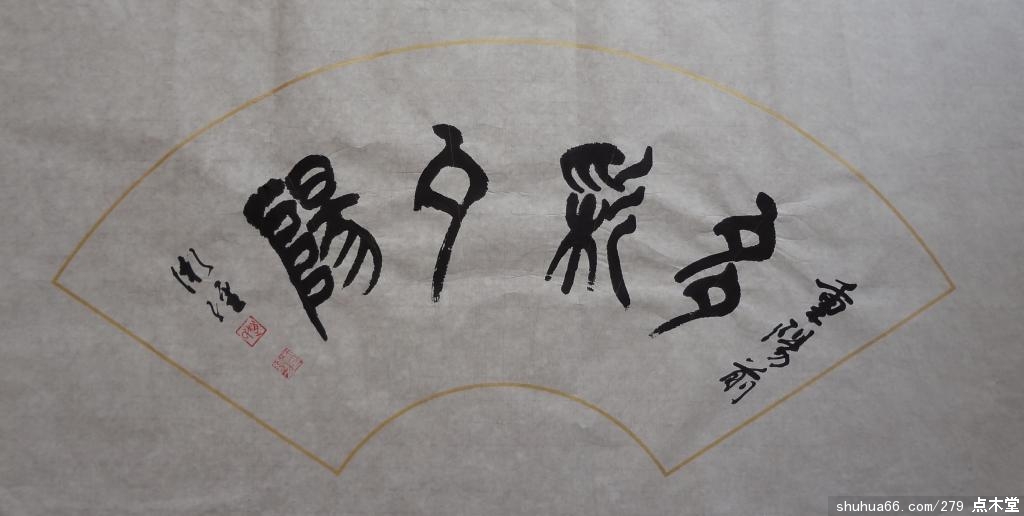 多彩夕陽
重陽前
shuhua66.com/279 点木堂